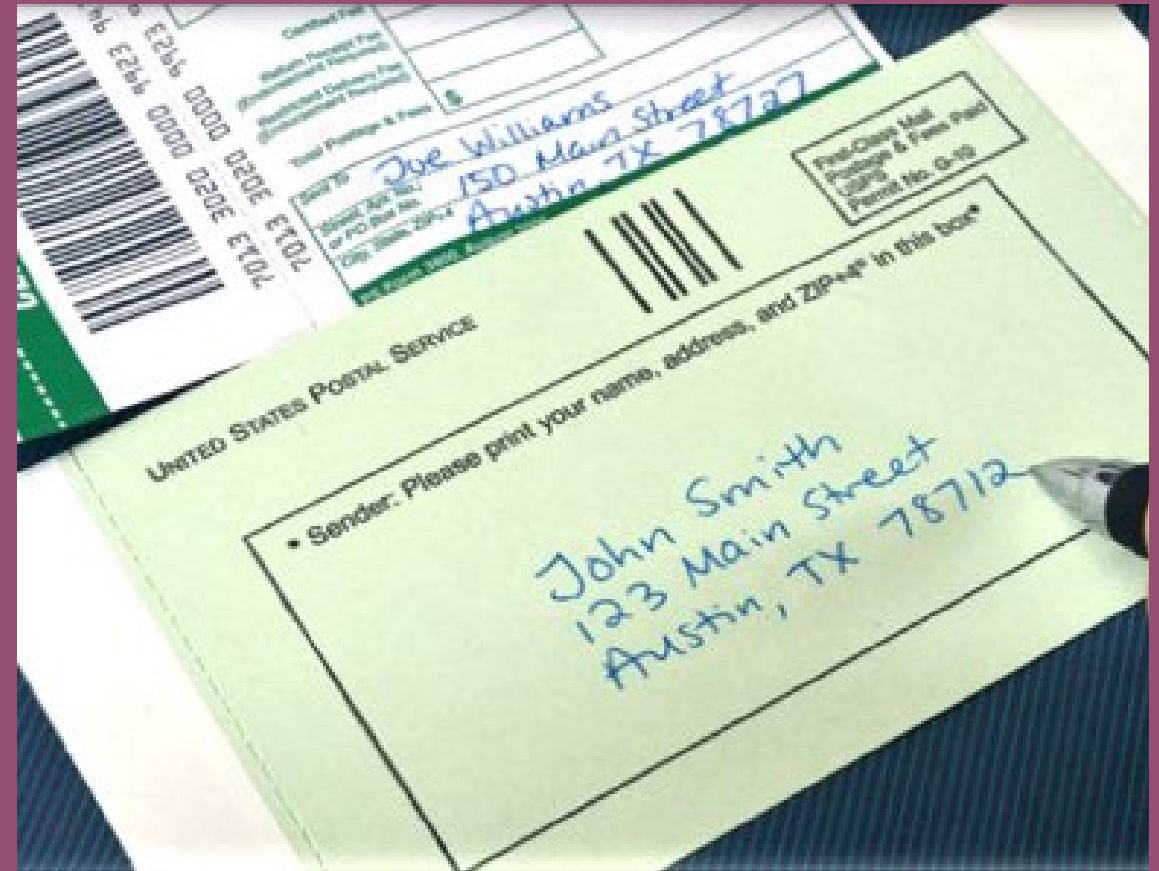 Certified Fee
Return Receipt Fee
(Endorsement Required)
Restricted Delivery Fee
(Endorsement Required)
Total Postage & Fees
$
Sent To
Joe Williams
Street, Apt. No.;
or PO Box No.
150 Main Street
City, State, ZIP+4
Austin, TX 78727
7013 3020 0000 9923
7013 3020 0000 9923
First-Class Mail
Postage & Fees Paid
USPS
Permit No. G-10
UNITED STATES POSTAL SERVICE
• Sender: Please print your name, address, and ZIP+4® in this box•
John Smith
123 Main Street
Austin, TX 78712